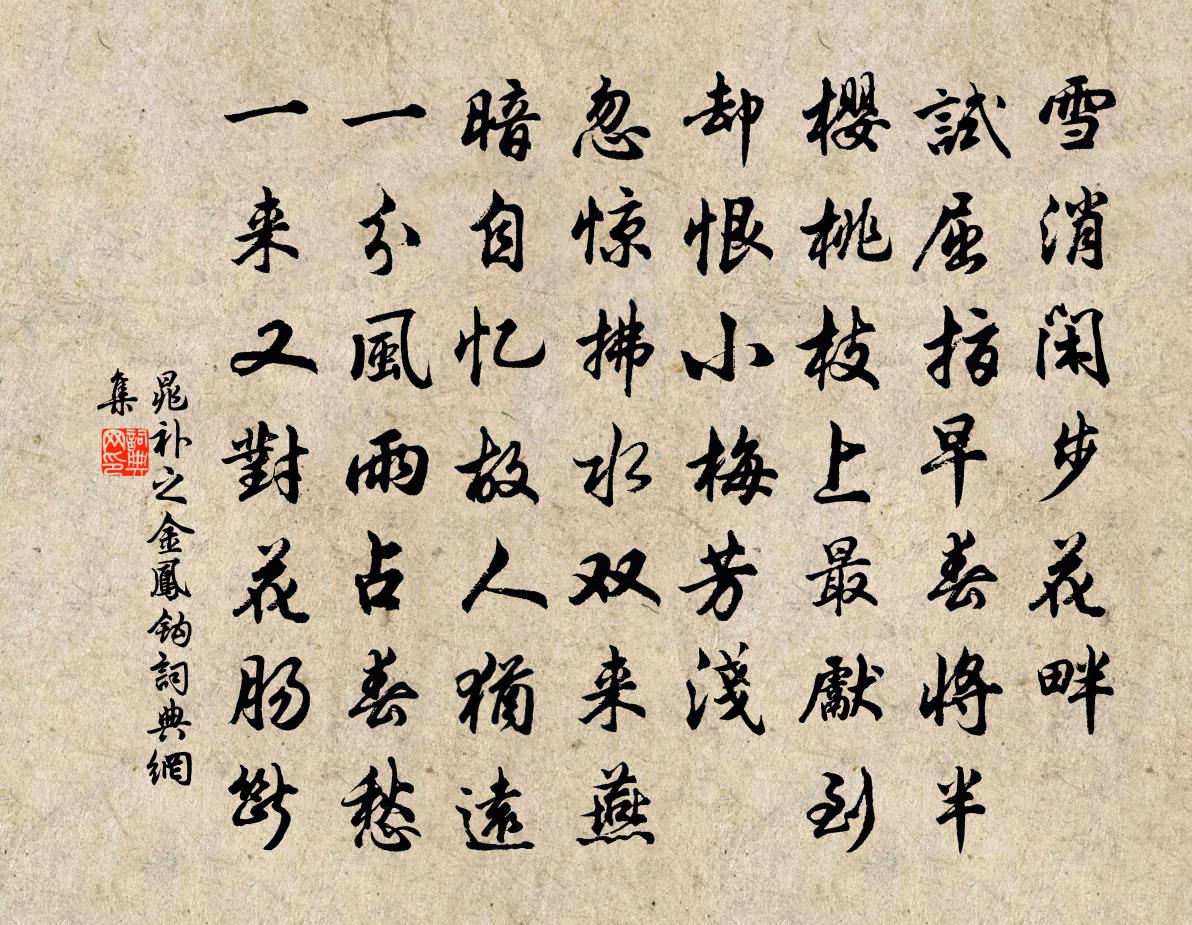 雪消闲步花畔
試屈指早春将半
櫻桃枝上最獻到
却恨小梅芳淺
忽惊拂水双来燕
暗自忆故人猶遠
一分風雨占春愁
一来又對花肠斷
晁补之金鳳钩詞典網
集
詞典网印